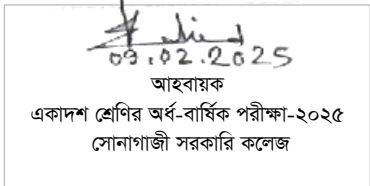 09.02.2025
আহবায়ক
একাদশ শ্রেণির অর্ধ-বার্ষিক পরীক্ষা-২০২৫
সোনাগাজী সরকারি কলেজ